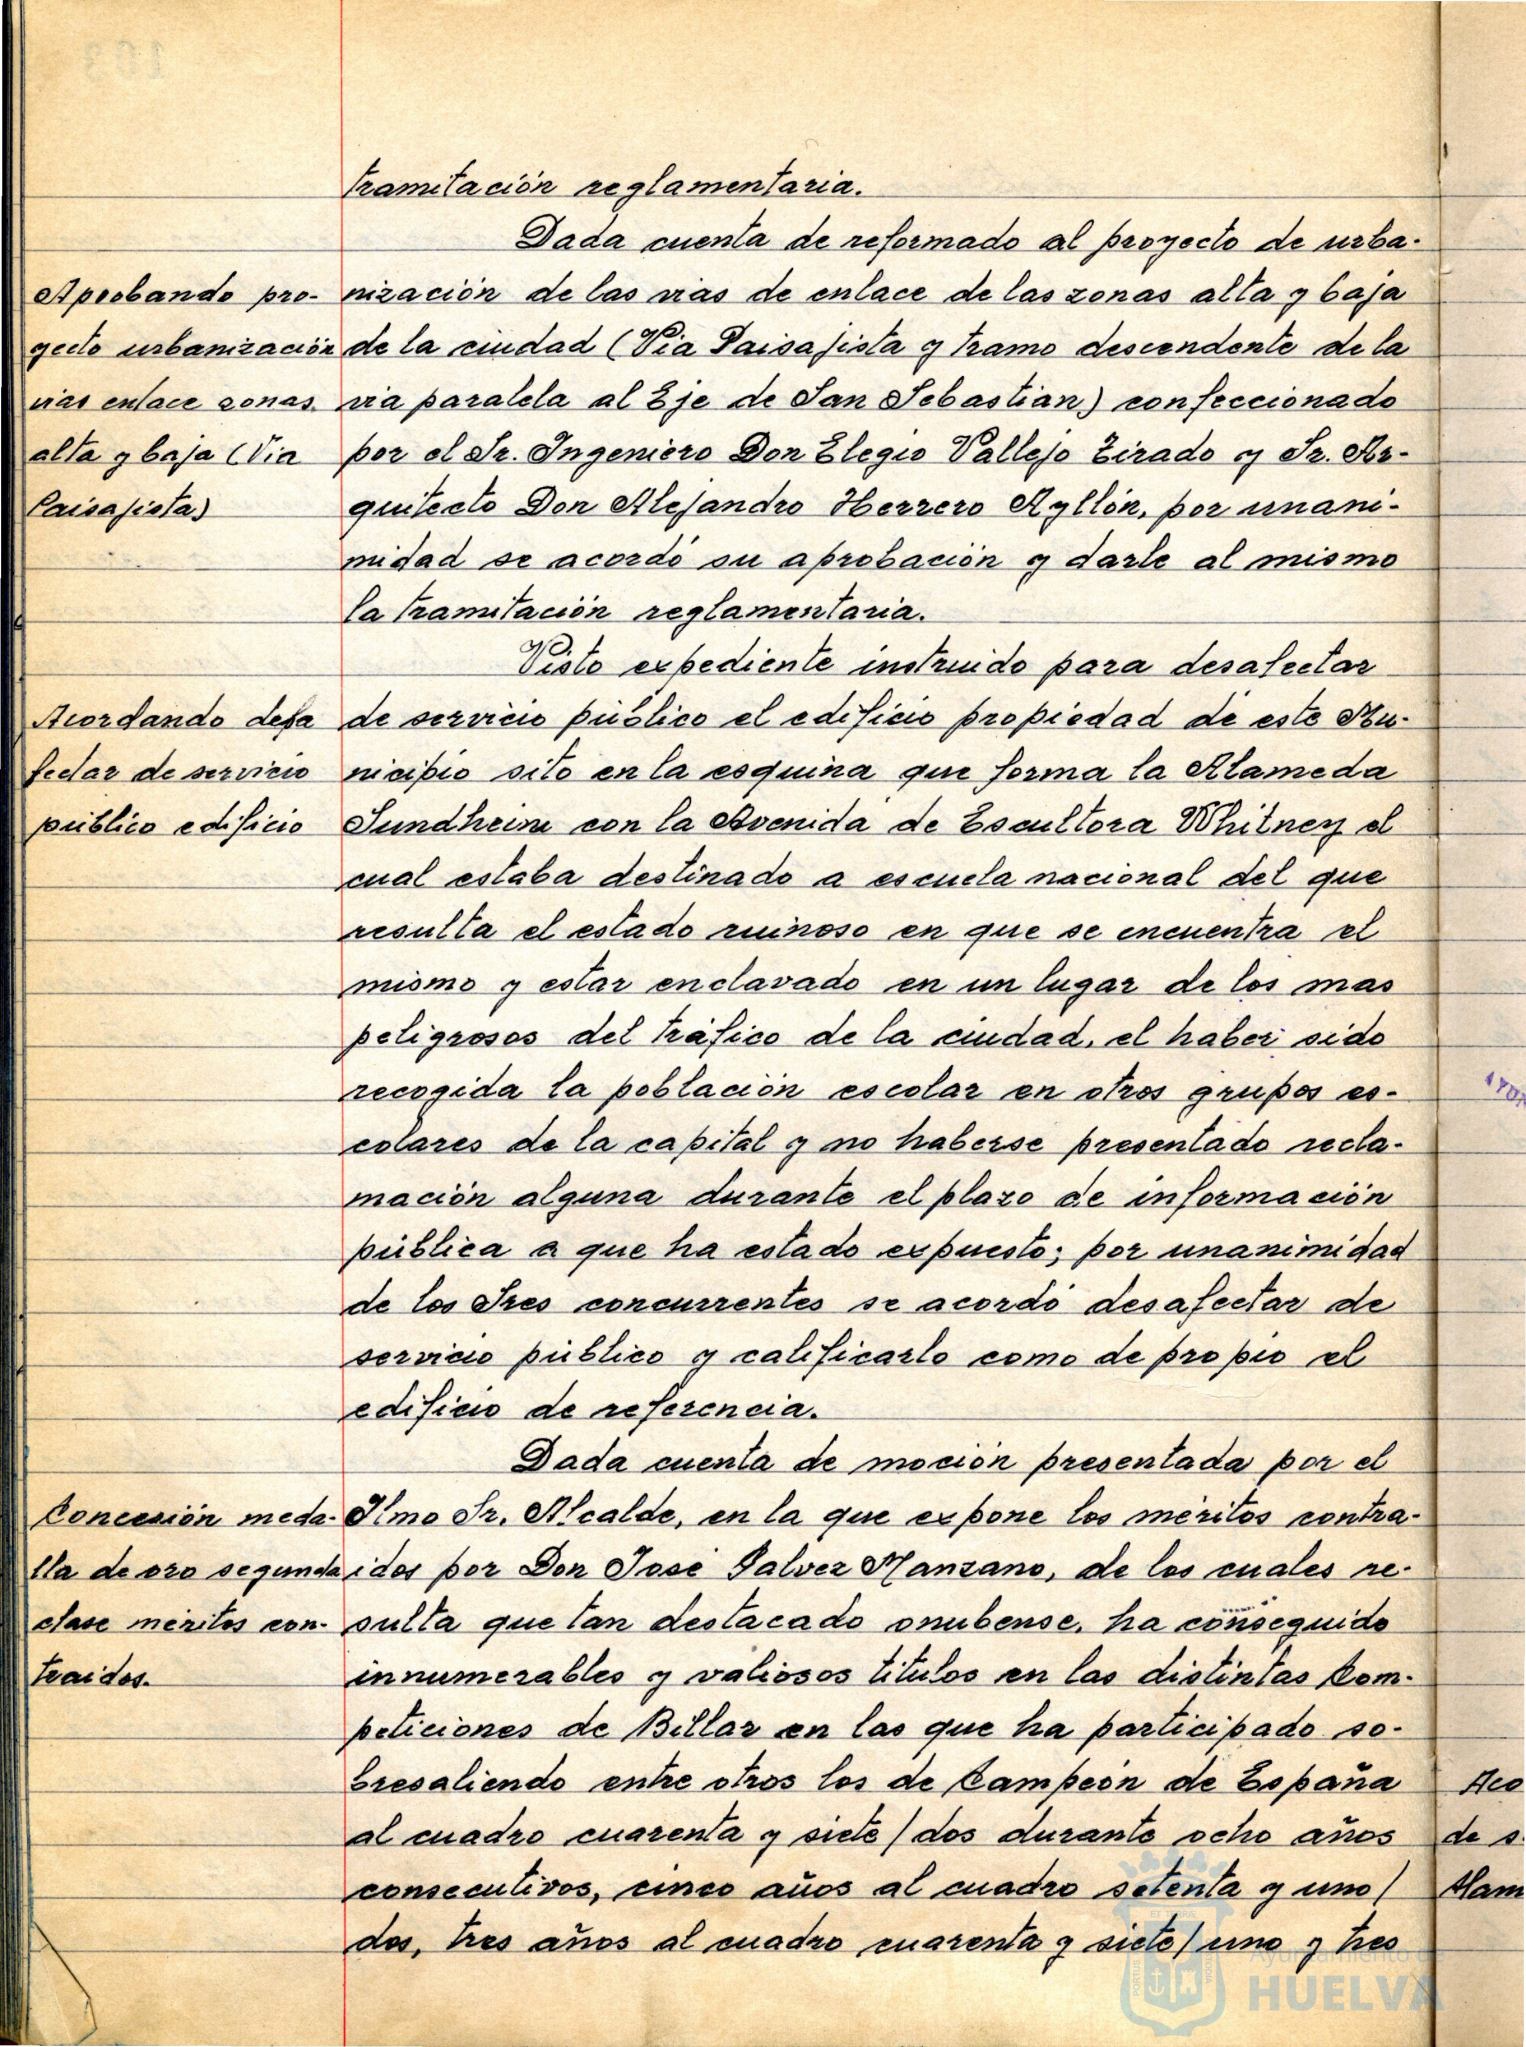 tramitación reglamentaria.
Dada cuenta de reformado al proyecto de urba-
nización de las vias de enlace de las zonas alta y baja
de la ciudad (Via Paisajista y tramo descendente de la
via paralela al Eje de San Sebastian) confeccionado
por el Sr. Ingeniero Don Elegio Vallejo Tirado y Sr. Ar-
quitecto Don Alejandro Herrero Ayllón, por unani-
midad se acordó su aprobación y darle al mismo
la tramitación reglamentaria.
Aprobando pro-
yecto urbanización
vias enlace zonas
alta y baja (Via
Paisajista)
Visto expediente instruido para desafectar
de servicio público el edificio propiedad de este Mu-
nicipio sito en la esquina que forma la Alameda
Sundheim con la Avenida de Escultora Whitney el
cual estaba destinado a escuela nacional del que
resulta el estado ruinoso en que se encuentra el
mismo y estar enclavado en un lugar de los mas
peligrosos del tráfico de la ciudad, el haber sido
recogida la población escolar en otros grupos es-
colares de la capital y no haberse presentado recla-
mación alguna durante el plazo de información
pública a que ha estado expuesto; por unanimidad
de los Sres concurrentes se acordó desafectar de
servicio público y calificarlo como de propio el
edificio de referencia.
Acordando desa
fectar de servicio
público edificio
Dada cuenta de moción presentada por el
Ilmo Sr. Alcalde, en la que expone los méritos contra-
idos por Don José Galvez Manzano, de los cuales re-
sulta que tan destacado onubense, ha conseguido
innumerables y valiosos titulos en las distintas Com-
peticiones de Billar en las que ha participado so-
bresaliendo entre otros los de Campeón de España
al cuadro cuarenta y siete/dos durante ocho años
consecutivos, cinco años al cuadro setenta y uno/
dos, tres años al cuadro cuarenta y siete/uno y tres
Concesión meda-
lla de oro segunda
clase méritos con-
traidos.
Aco
de s
Alam
Ayuntamiento de
HUELVA